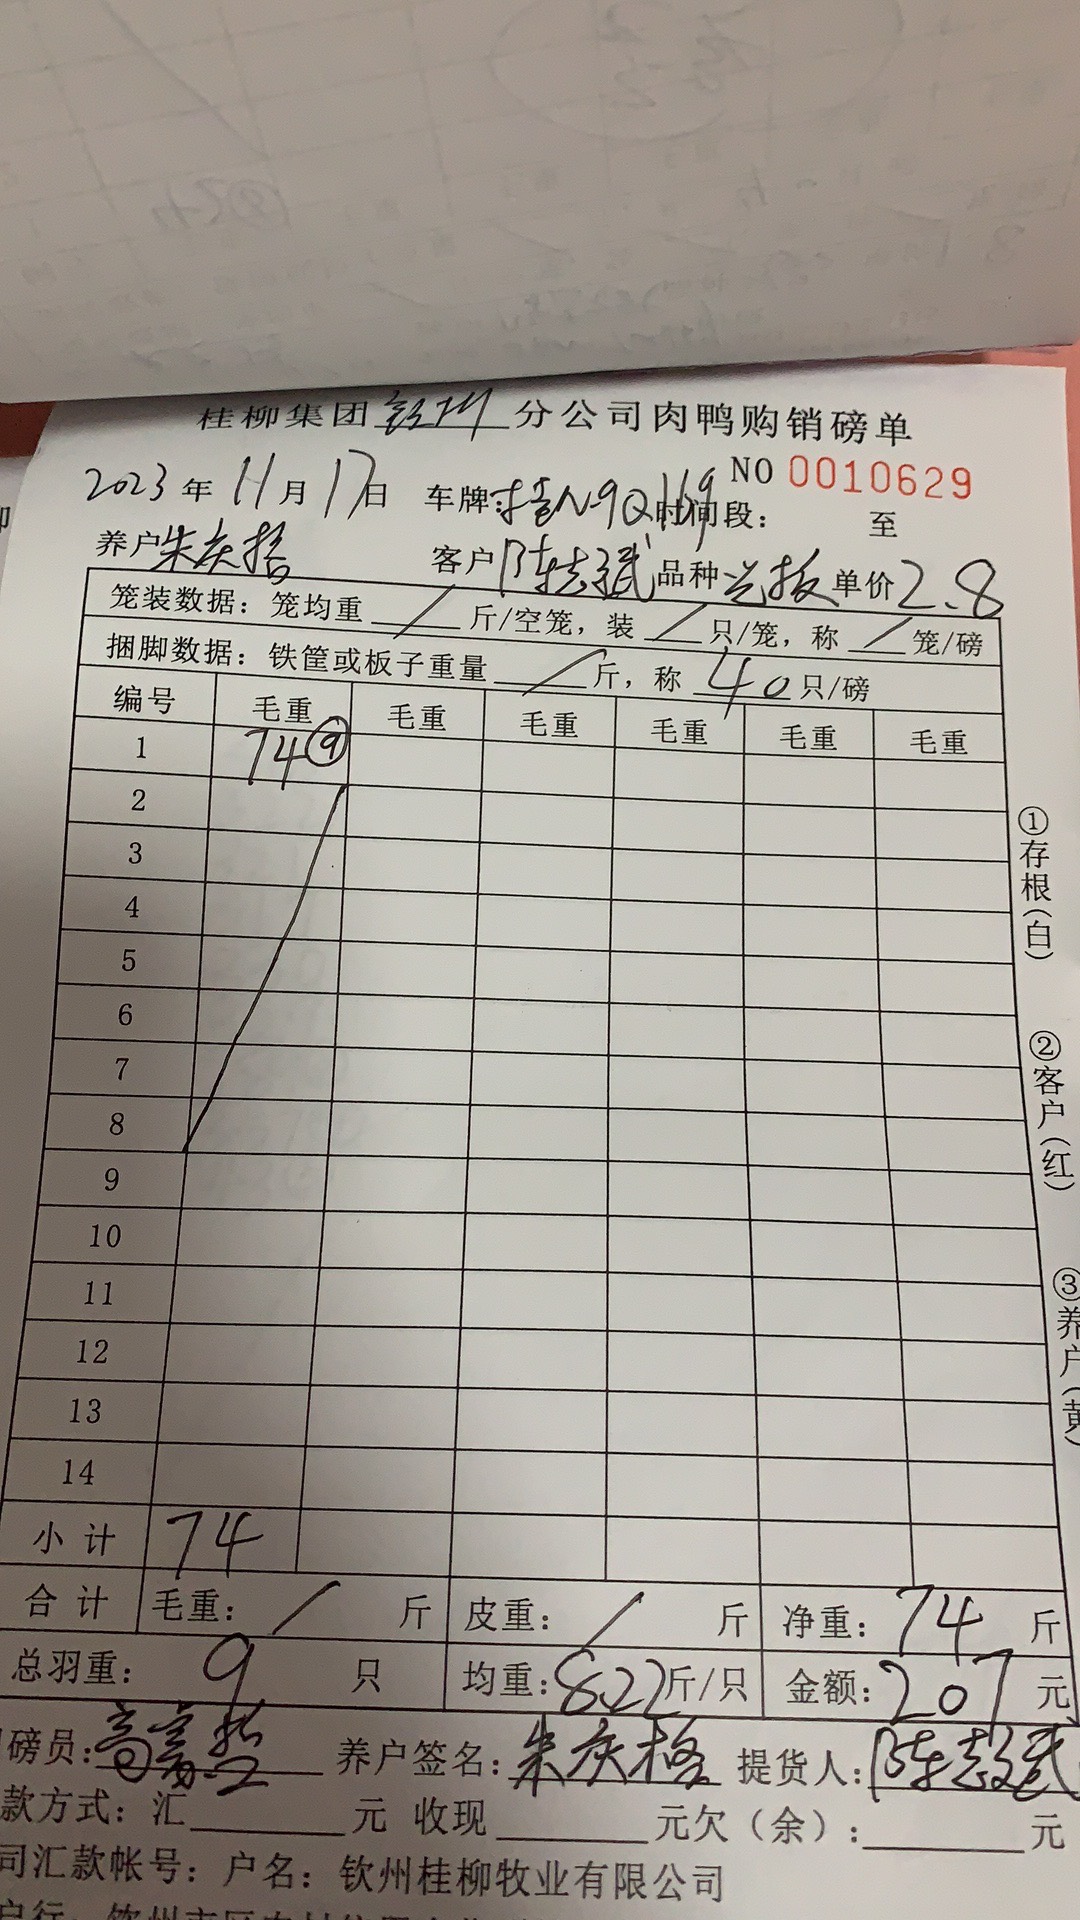 桂柳集团 分公司肉鸭购销磅单
NO 0010629
2023年11月17日 车牌: 桂N9Q169 时间段: 至
养户 朱庆 客户 陈志斌 品种 单价 2.8
笼装数据: 笼均重 / 斤/空笼, 装 / 只/笼, 称 / 笼/磅
捆脚数据: 铁筐或板子重量 / 斤, 称 40 只/磅
编号 毛重 毛重 毛重 毛重 毛重 毛重
1 74 ⑨
2
3
4
5
6
7
8
9
10
11
12
13
14
小计 74
合计 毛重: / 斤 皮重: / 斤 净重: 74 斤
总羽重: 9 只 均重: 8.22 斤/只 金额: 207 元
磅员: 养户签名: 朱庆格 提货人: 陈志斌
款方式: 汇 元 收现 元欠(余): 元
司汇款帐号: 户名: 钦州桂柳牧业有限公司
①存根(白)
②客户(红)
③养户(黄)